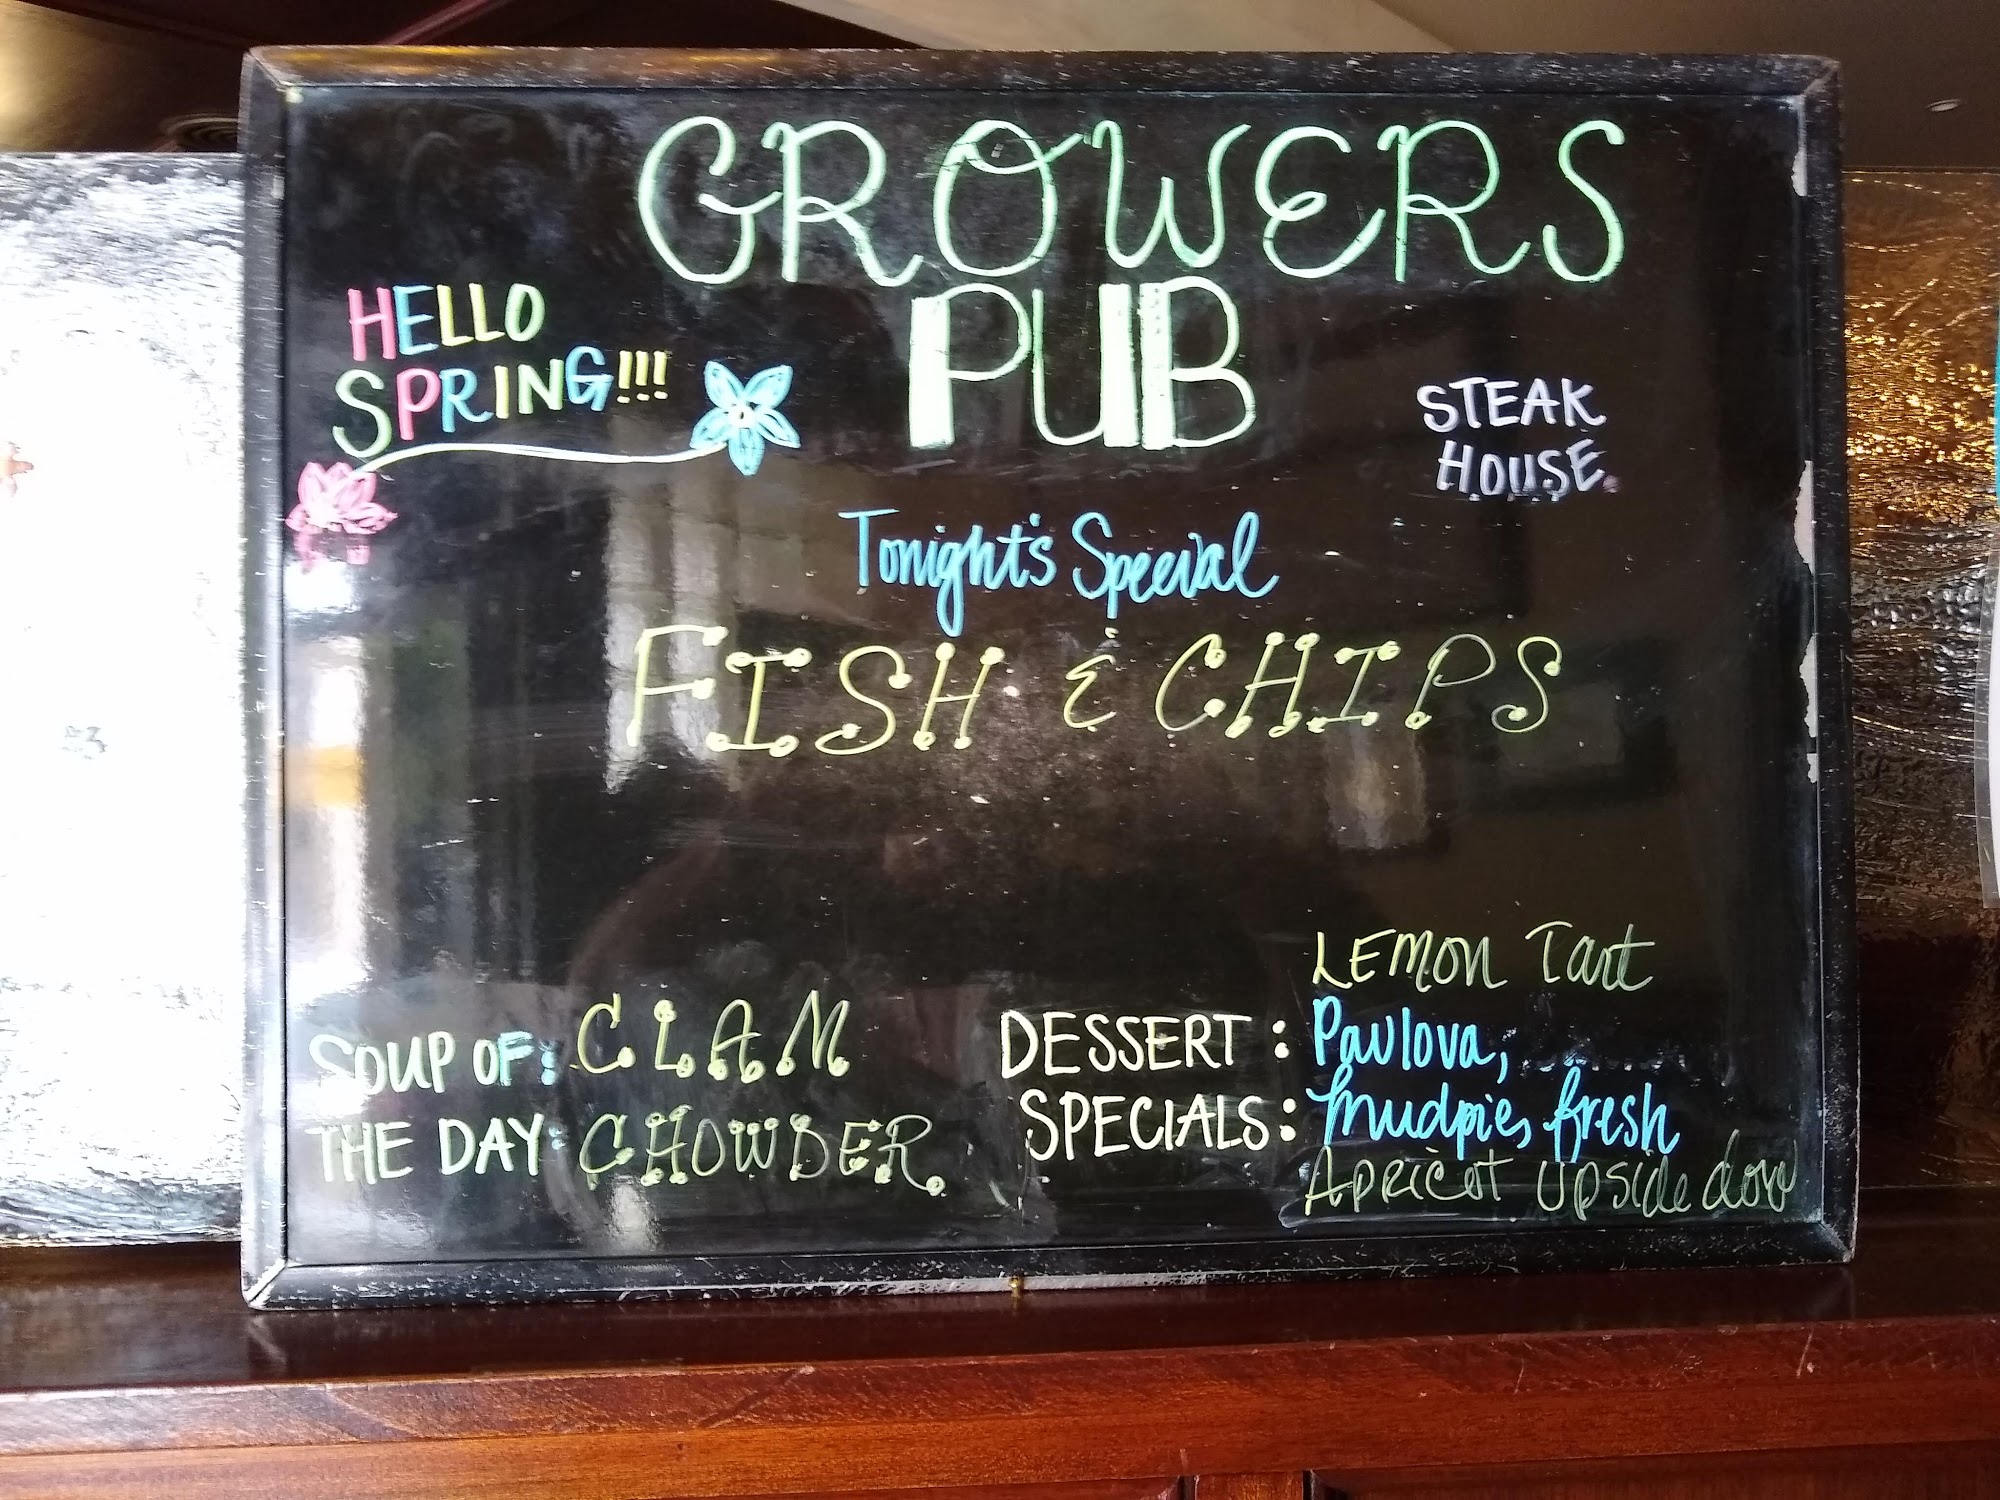 GROWERS
PUB
HELLO
SPRING!!!
STEAK
HOUSE
Tonight's Special
FISH & CHIPS
SOUP OF: CLAM
THE DAY: CHOWDER.
LEMON Tart
DESSERT : Pavlova,
SPECIALS: mudpie, fresh
APRICOT UPSIDE down